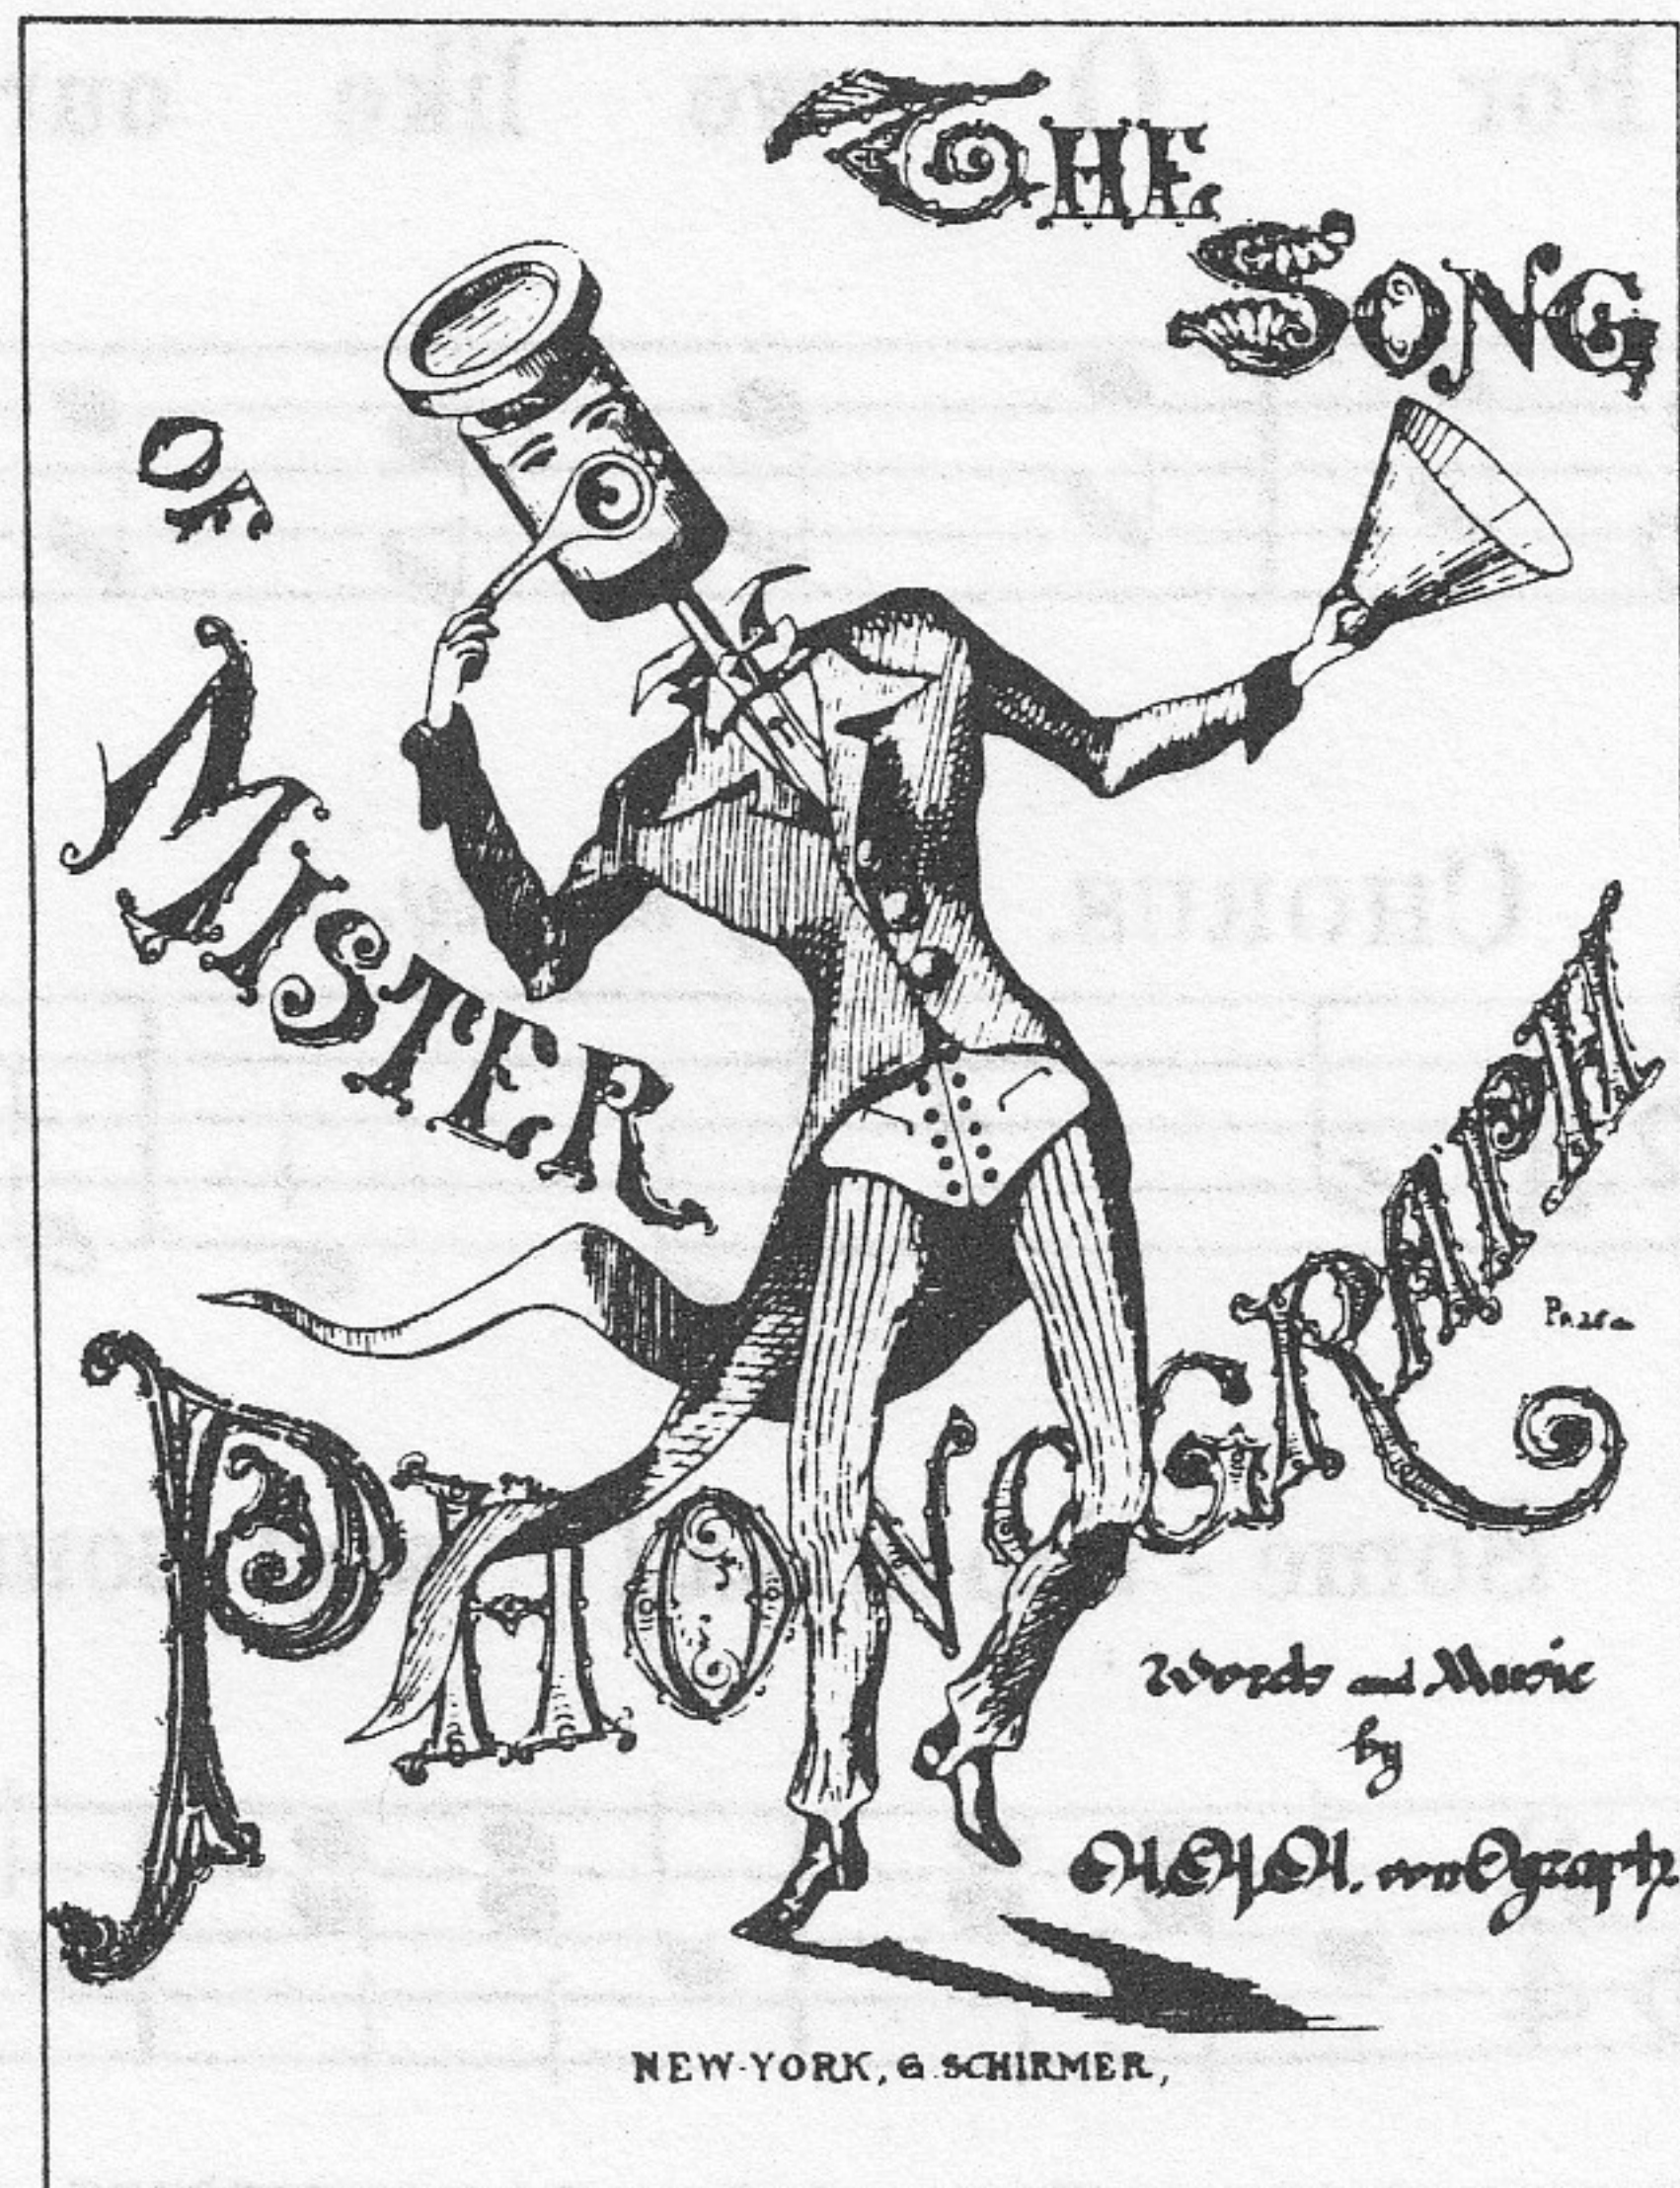 THE
SONG
OF
MISTER
PHONOGRAPH
Words and Music
by
H.H.H. von Ograph.
NEW-YORK, G. SCHIRMER,